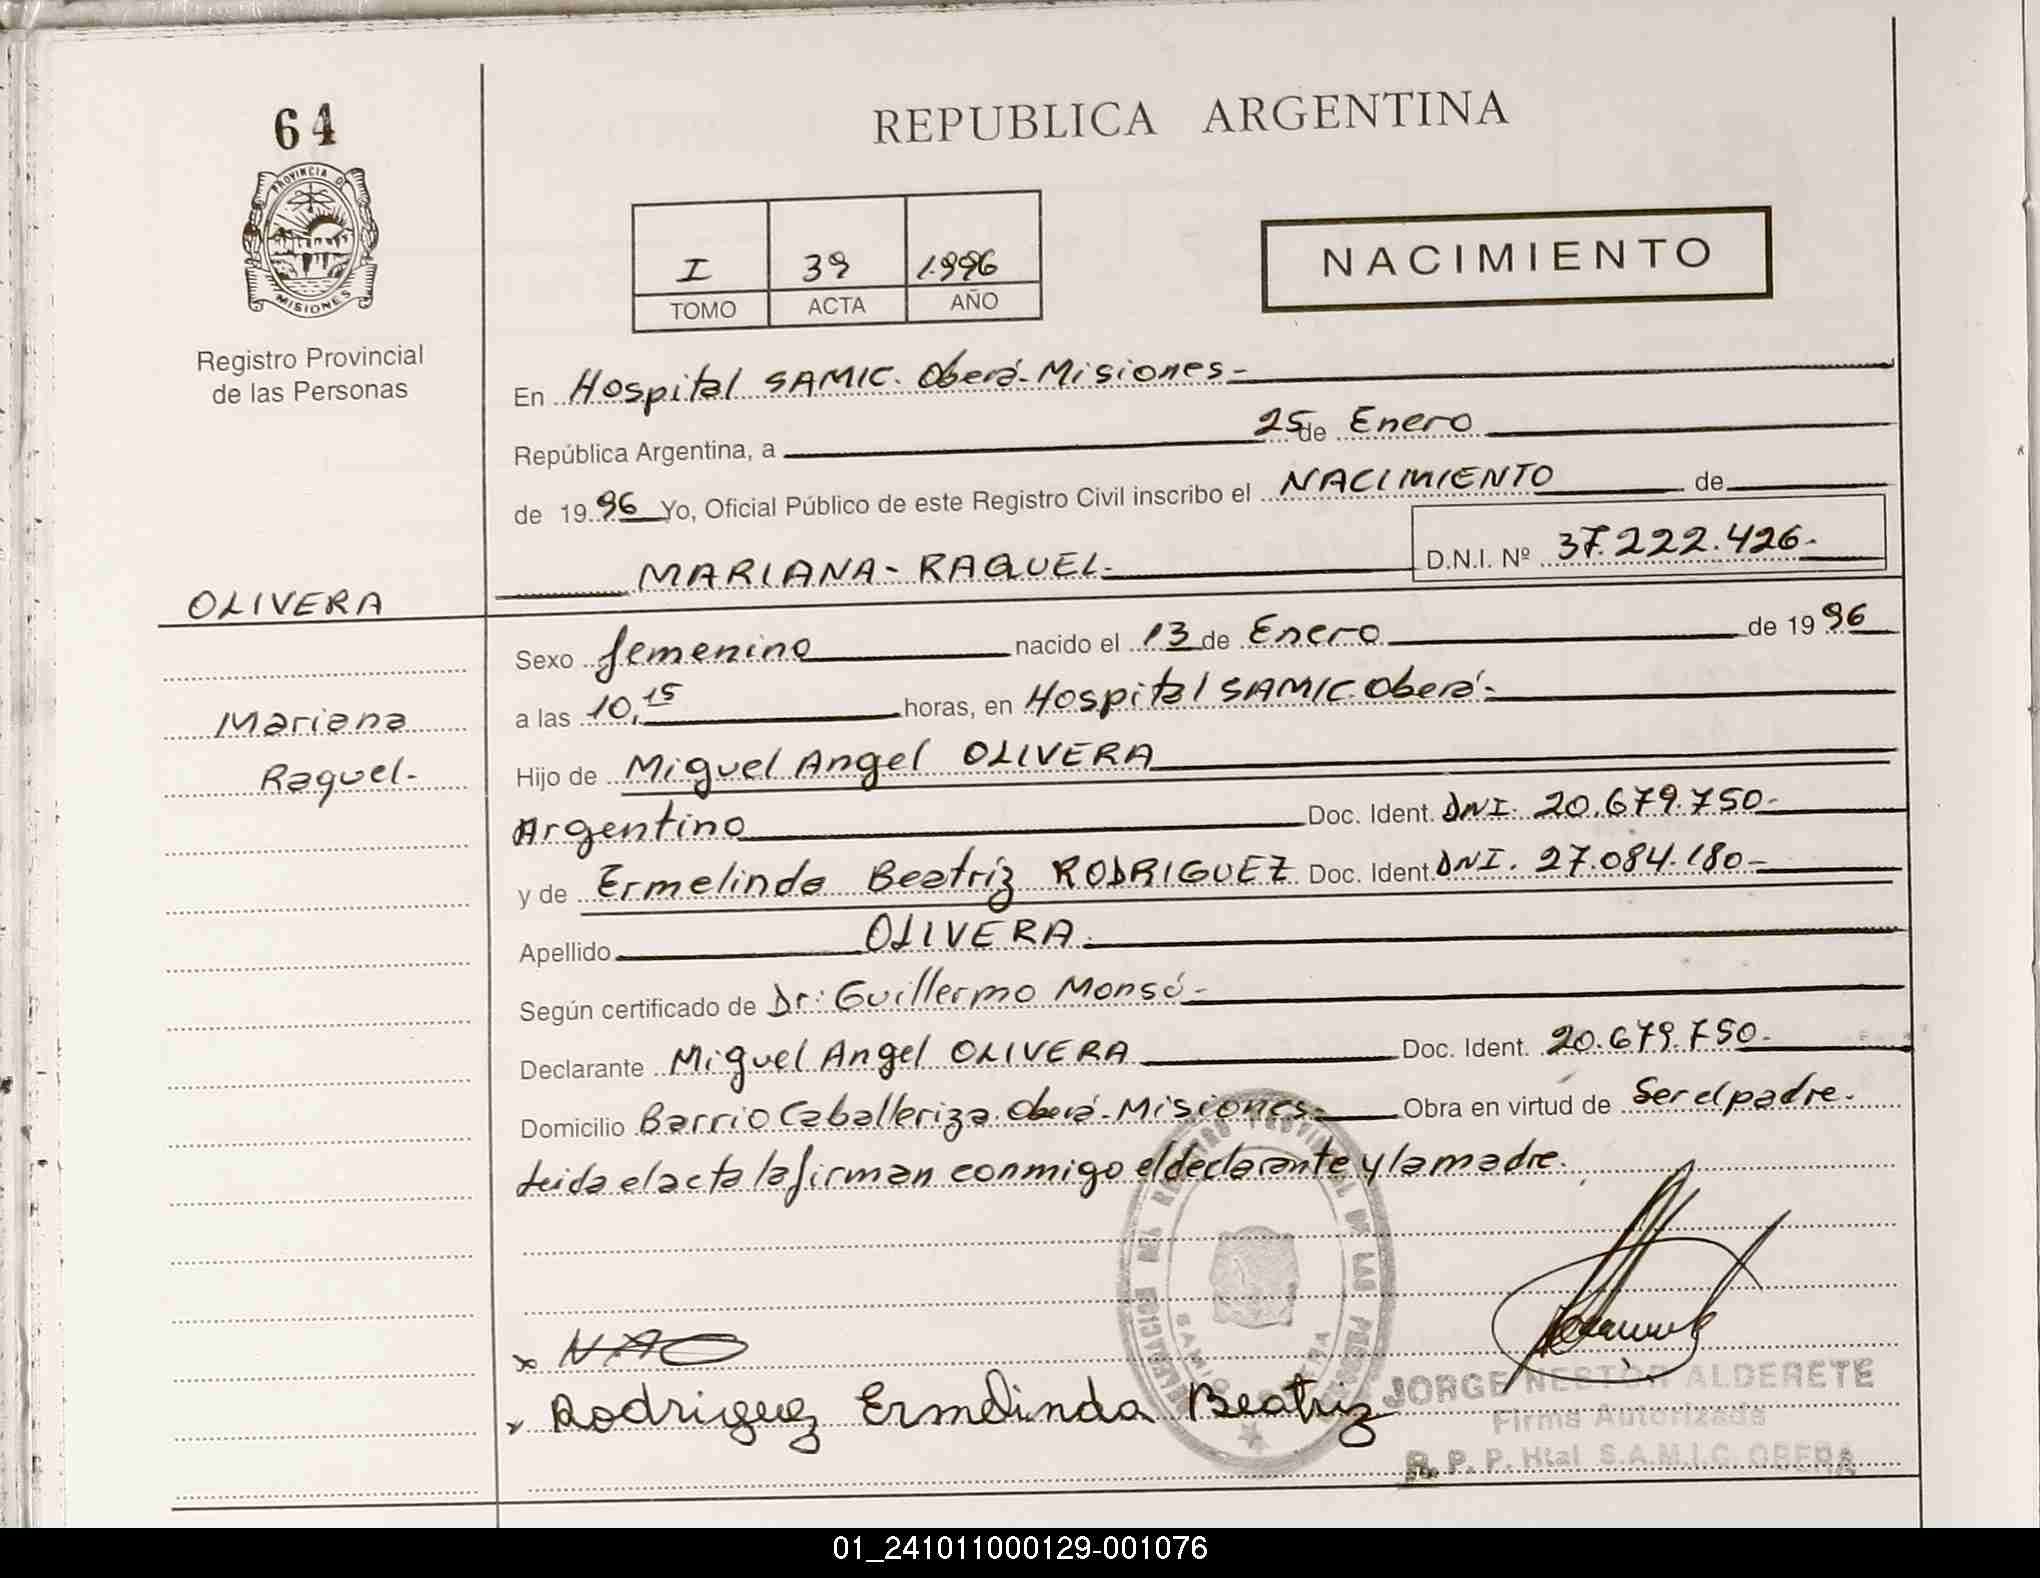 64
REPUBLICA ARGENTINA
PROVINCIA D
MISIONES
I 39 1.996
TOMO ACTA AÑO
NACIMIENTO
Registro Provincial
de las Personas
En Hospital SAMIC. Oberá-Misiones-
República Argentina, a 25 de Enero
de 1996 Yo, Oficial Público de este Registro Civil inscribo el NACIMIENTO de
MARIANA-RAQUEL- D.N.I. Nº 37.222.426-
OLIVERA
Sexo femenino nacido el 13 de Enero de 1996
a las 10,15 horas, en Hospital SAMIC. Oberá-
Mariana
Raquel-
Hijo de Miguel Angel OLIVERA
Argentino Doc. Ident. DNI. 20.679.750-
y de Ermelinda Beatriz RODRIGUEZ Doc. Ident. DNI. 27.084.180-
Apellido OLIVERA.
Según certificado de Dr: Guillermo Monsó-
Declarante Miguel Angel OLIVERA Doc. Ident. 20.679.750-
Domicilio Barrio Caballeriza. Oberá-Misiones- Obra en virtud de Ser el padre.
Leida el acta la firman conmigo el declarante y la madre.
REGISTRO PROVINCIAL DE LAS PERSONAS
x
x Rodriguez Ermelinda Beatriz
JORGE NESTOR ALDERETE
Firma Autorizada
R. P. P. Htal S.A.M.I.C. OBERA
01_241011000129-001076